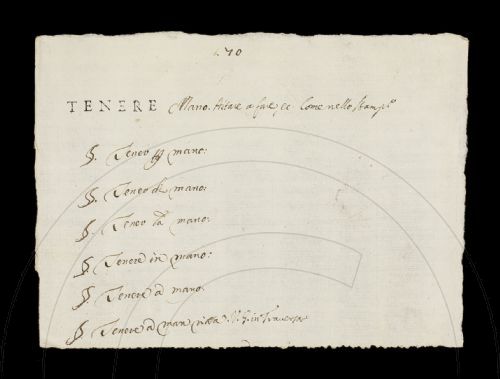 TENERE Mano. Aitare a fare &c Come nello Stamp.º
§. Tener mano:
§. Tener di mano:
§. Tener la mano:
§. Tenere in mano:
§. Tenere a mano.
§. Tenere a man